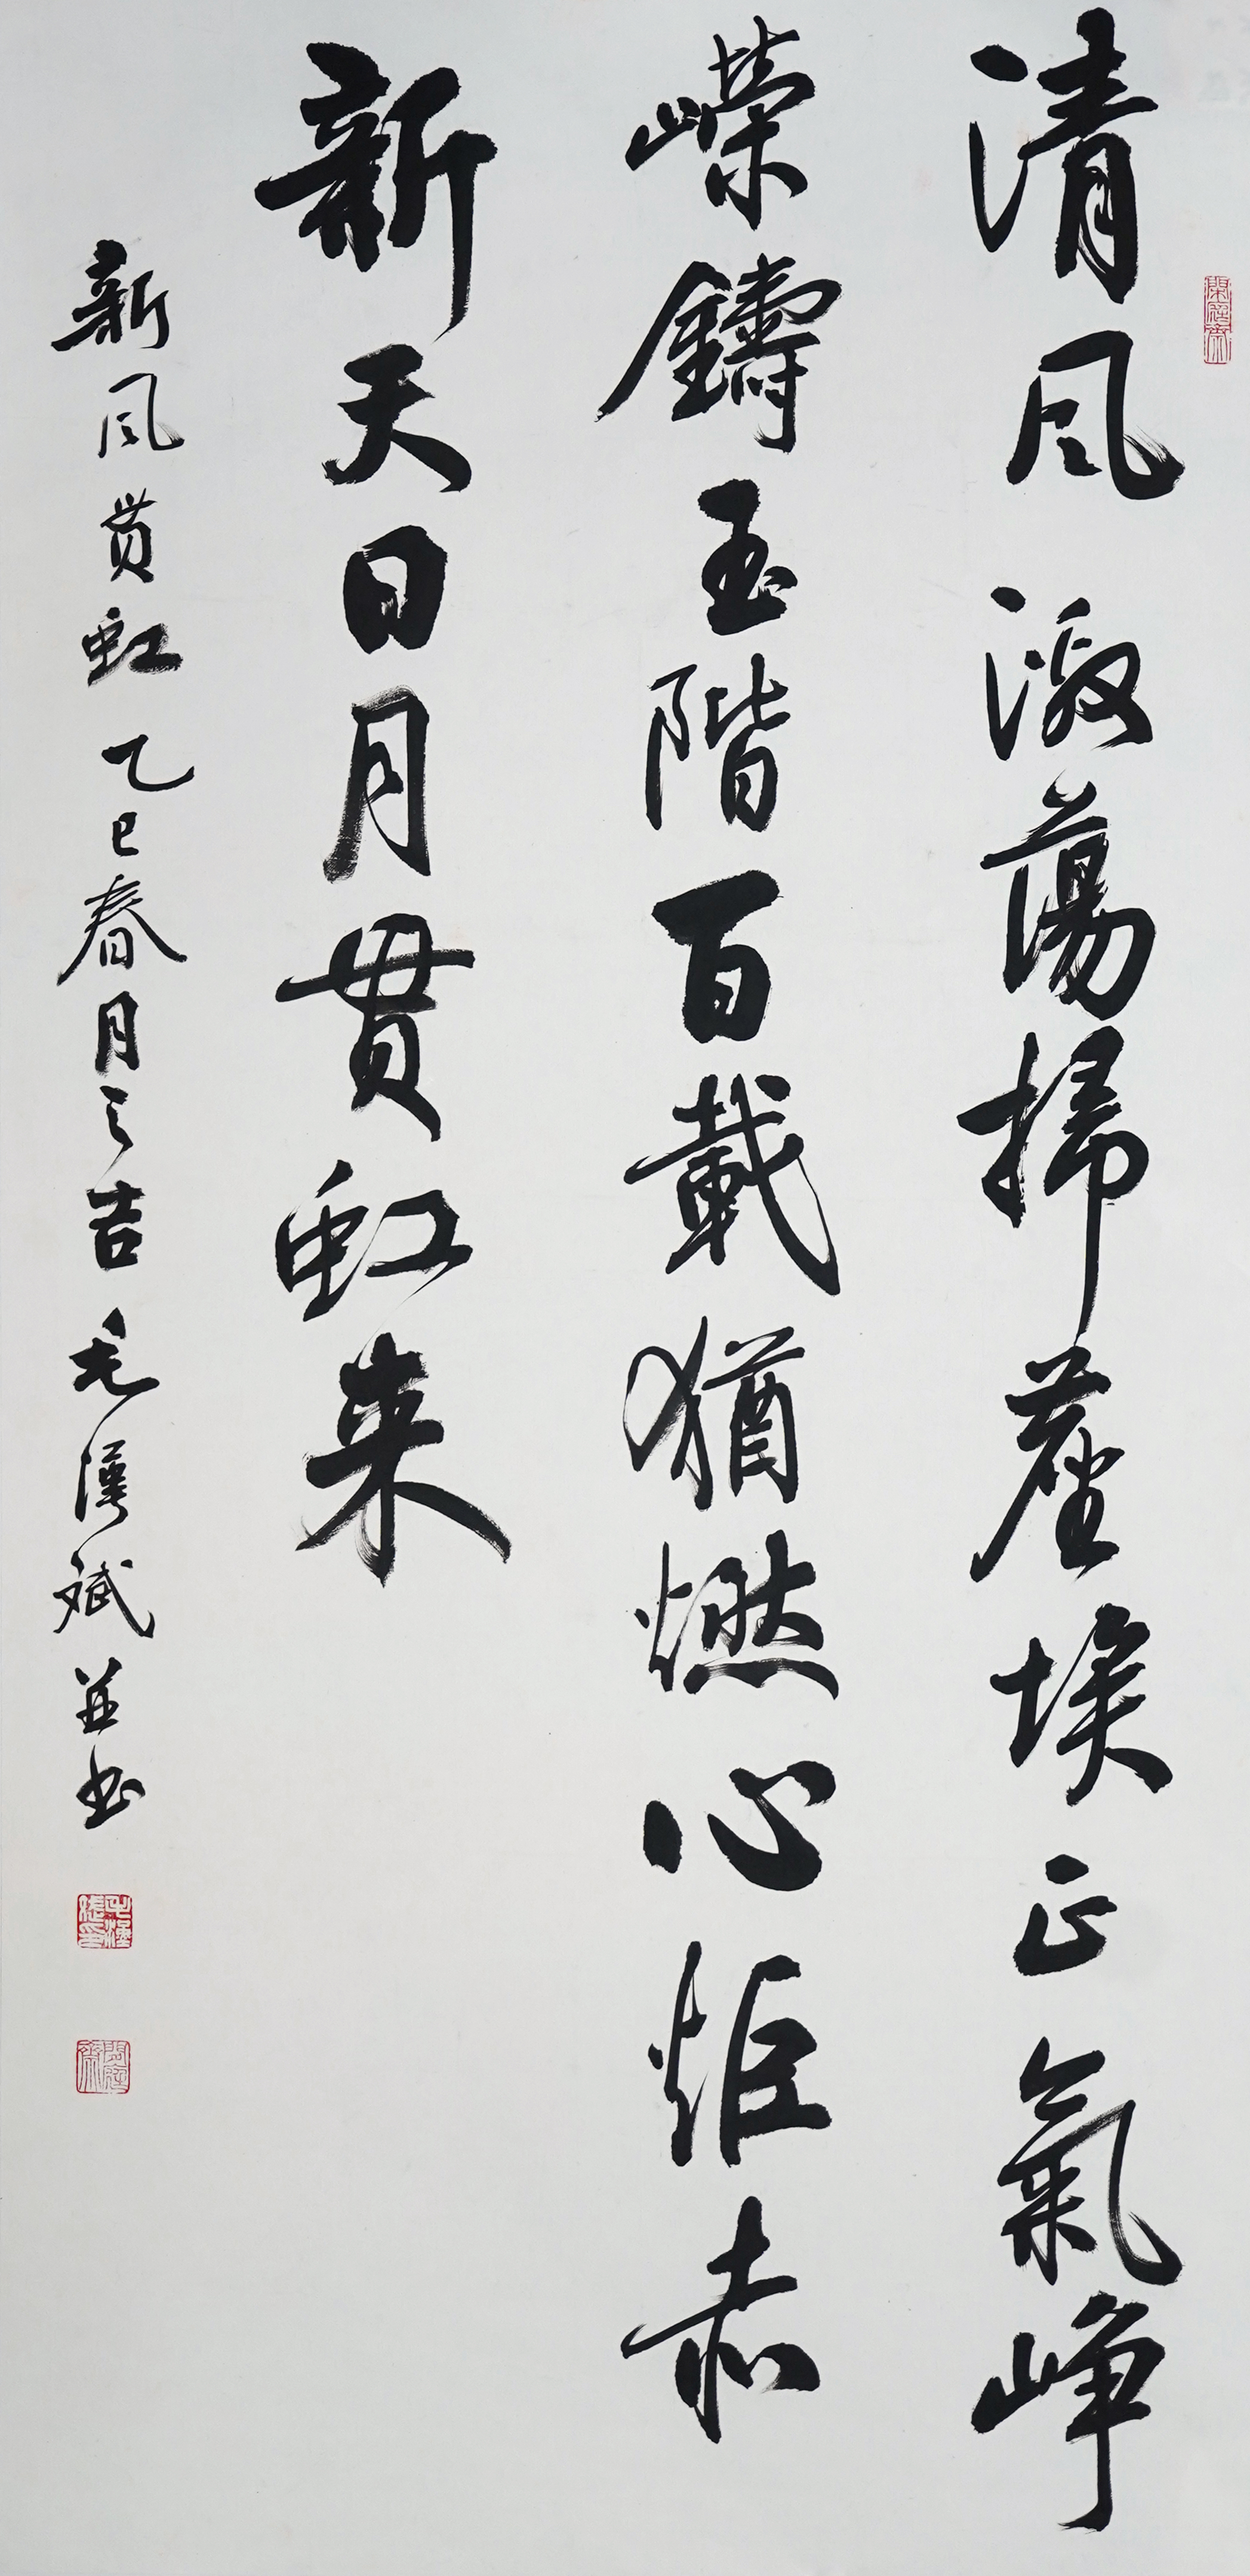 清风激荡掃塵埃正氣峥
嶸鑄玉階百載猶燃心炬赤
新天日月贯虹来
新风贯虹乙巳春月之吉毛漢斌並书